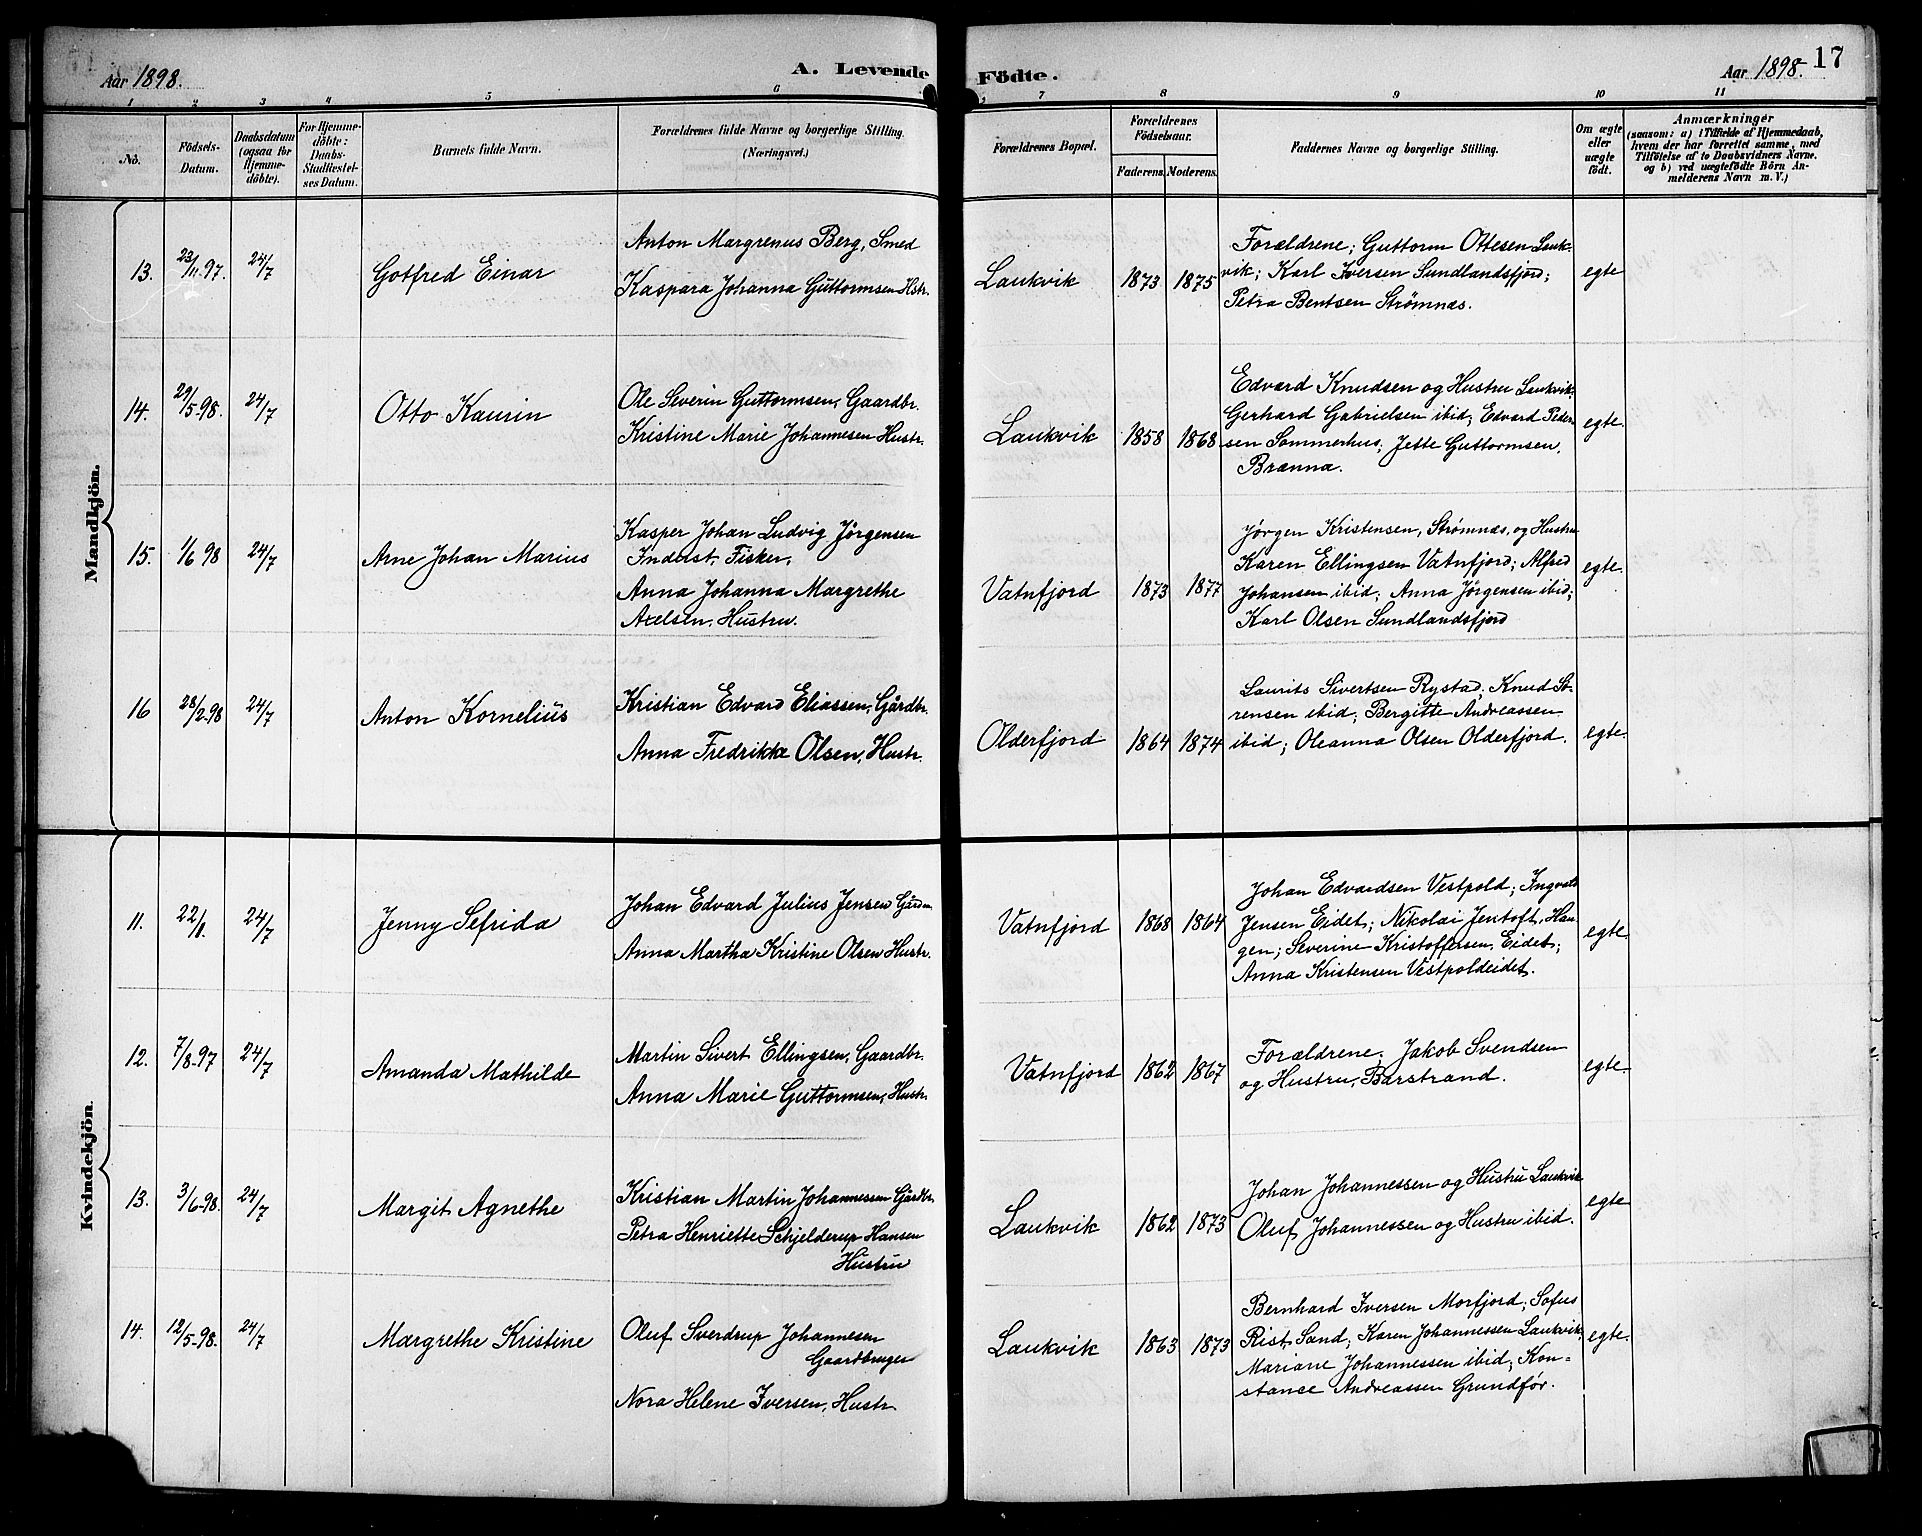 Aar 1898.
A. Levende Födte.
Aar 1898.
17
1 2 3 4 5 6 7 8 9 10 11
No.
Födsels-
Datum.
Daabsdatum
(ogsaa for
Hjemme-
döbte).
For Hjemme-
döbte:
Daabs-
Stadfæstel-
ses Datum.
Barnets fulde Navn.
Forældrenes fulde Navne og borgerlige Stilling.
(Næringsvei.)
Forældrenes Bopæl.
Forældrenes
Födselsaar.
Faderens. Moderens.
Faddernes Navne og borgerlige Stilling.
Om ægte
eller
uægte
födt.
Anmærkninger
(saasom: a) i Tilfælde af Hjemmedaab,
hvem der har forrettet samme, med
Tilföielse af to Daabsvidners Navne.
og b) ved uægtefödte Börn An-
melderens Navn m. V.)
Mandkjön.
13. 23/11.97. 24/7 Gotfred Einar
Anton Margrenus Berg, Smed
Kaspara Johanna Guttormsen Hstr.
Laukvik 1873 1875
Forældrene; Guttorm Ottesen Lauk-
vik; Karl Iversen Sundlandsfjord;
Petra Bentsen Strømnæs.
egte
14. 29/5-98. 24/7 Otto Kaurin
Ole Severin Guttormsen, Gaardbr.
Kristine Marie Johannesen Hustr.
Laukvik 1858 1868
Edvard Knudsen og Hustru Laukvik.
Gerhard Gabrielsen ibid; Edvard Peder-
sen Sommerhus, Jette Guttormsen,
Brænna.
egte.
15. 1/6 98 24/7 Arne Johan Marius
Kasper Johan Ludvig Jörgensen
Inderst, Fisker,
Anna Johanna Margrethe
Axelsen, Hustru.
Vatnfjord 1873 1877
Jörgen Kristensen, Strømnæs, og Hustru
Karen Ellingsen Vatnfjord; Alfred
Johansen ibid; Anna Jörgensen ibid;
Karl Olsen Sundlandsfjord
egte.
16 28/2.98 24/7 Anton Kornelius
Kristian Edvard Eliassen, Gårdbr.
Anna Fredrikke Olsen, Hustr.
Olderfjord 1864 1874
Laurits Sivertsen Rystad; Knud Sö-
rensen ibid; Bergitte Andreassen
ibid; Oleanna Olsen Olderfjord.
egte.
Kvindekjön.
11. 22/1. 24/7 Jenny Sefrida
Johan Edvard Julius Jensen Gårdm.
Anna Martha Kristine Olsen Hustr.
Vatnfjord 1868 1864
Johan Edvardsen Vestpold; Ingvald
Jensen Eidet; Nikolai Jentoft, Hau-
gen; Severine Kristoffersen, Eidet;
Anna Kristensen Vestpoldeidet.
egte.
12. 7/8-97 24/7 Amanda Mathilde
Martin Sivert Ellingsen, Gaardbr.
Anna Marie Guttormsen, Hustr.
Vatnfjord 1862 1867
Forældrene; Jakob Svendsen
og Hustru, Barstrand.
egte.
13. 3/6-98. 24/7 Margit Agnethe
Kristian Martin Johannessen Gårdbr.
Petra Henriette Schjelderup Hansen
Hustru
Laukvik 1862 1873
Johan Johannessen og Hustru Laukvik
Oluf Johannessen og Hustru ibid.
egte
14. 12/5-98. 24/7 Margrethe Kristine
Oluf Sverdrup Johannesen
Gaardbruger
Nora Helene Iversen, Hustr.
Laukvik 1863 1873
Bernhard Iversen Morfjord; Sofus
Rist, Sand; Karen Johannessen Laukvik,
Mariane Johannessen ibid; Kon-
stance Andreassen Grundför.
egte.